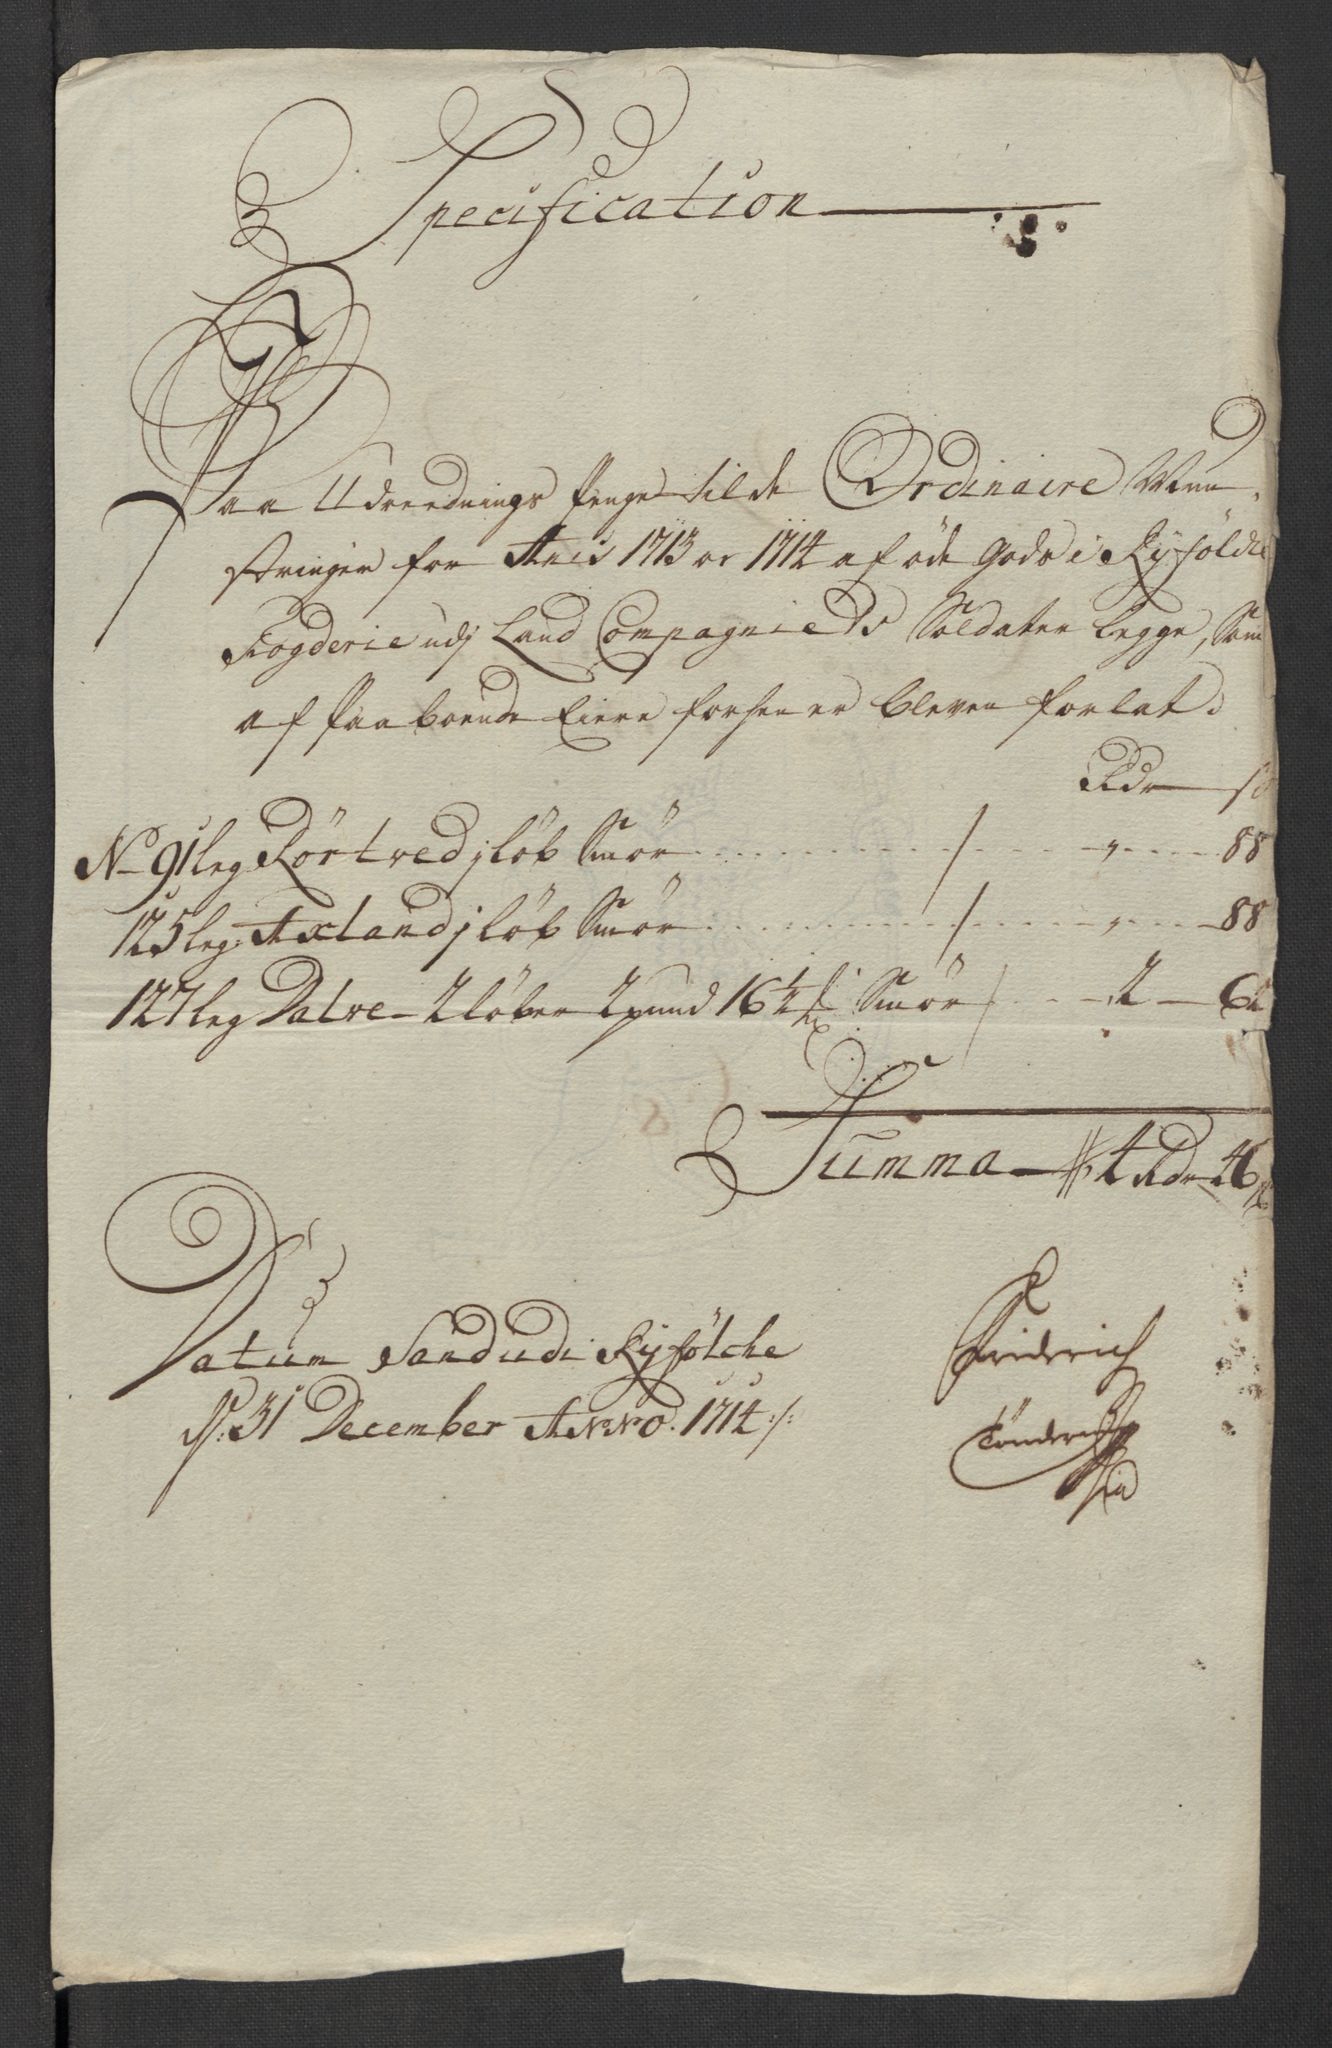 Specification
Paa Udreednings Penge til de Ordinaire Mun-
stringer for Anis 1713 oc 1714 af öde Gods i Ryfölche
Fogderie udj Land Compagnieds Soldater Legge, Som
af Paaboende Eiere forhen er bleven forlat:
Rdr ß
No 91 leg Rörtved j löb Smör / " 88
125 leg Axland j löb Smör / " 88
127 leg Dalve 2 löber 2 pund 16½ Smör / 2 62
Summa 4 Rdr 46 ß
Datum Sand udi Ryfölche
d: 31 December Anno. 1714:/:
Friderich
Tönder